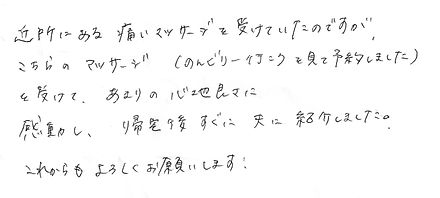 近所にある 痛いマッサージを受けていたのですが、
こちらの マッサージ (のんびり一行こうを見て予約しました)
を受けて、あまりの心地良さに
感動し、帰宅後すぐに 夫に 紹介しました。
これからも よろしくお願いします!